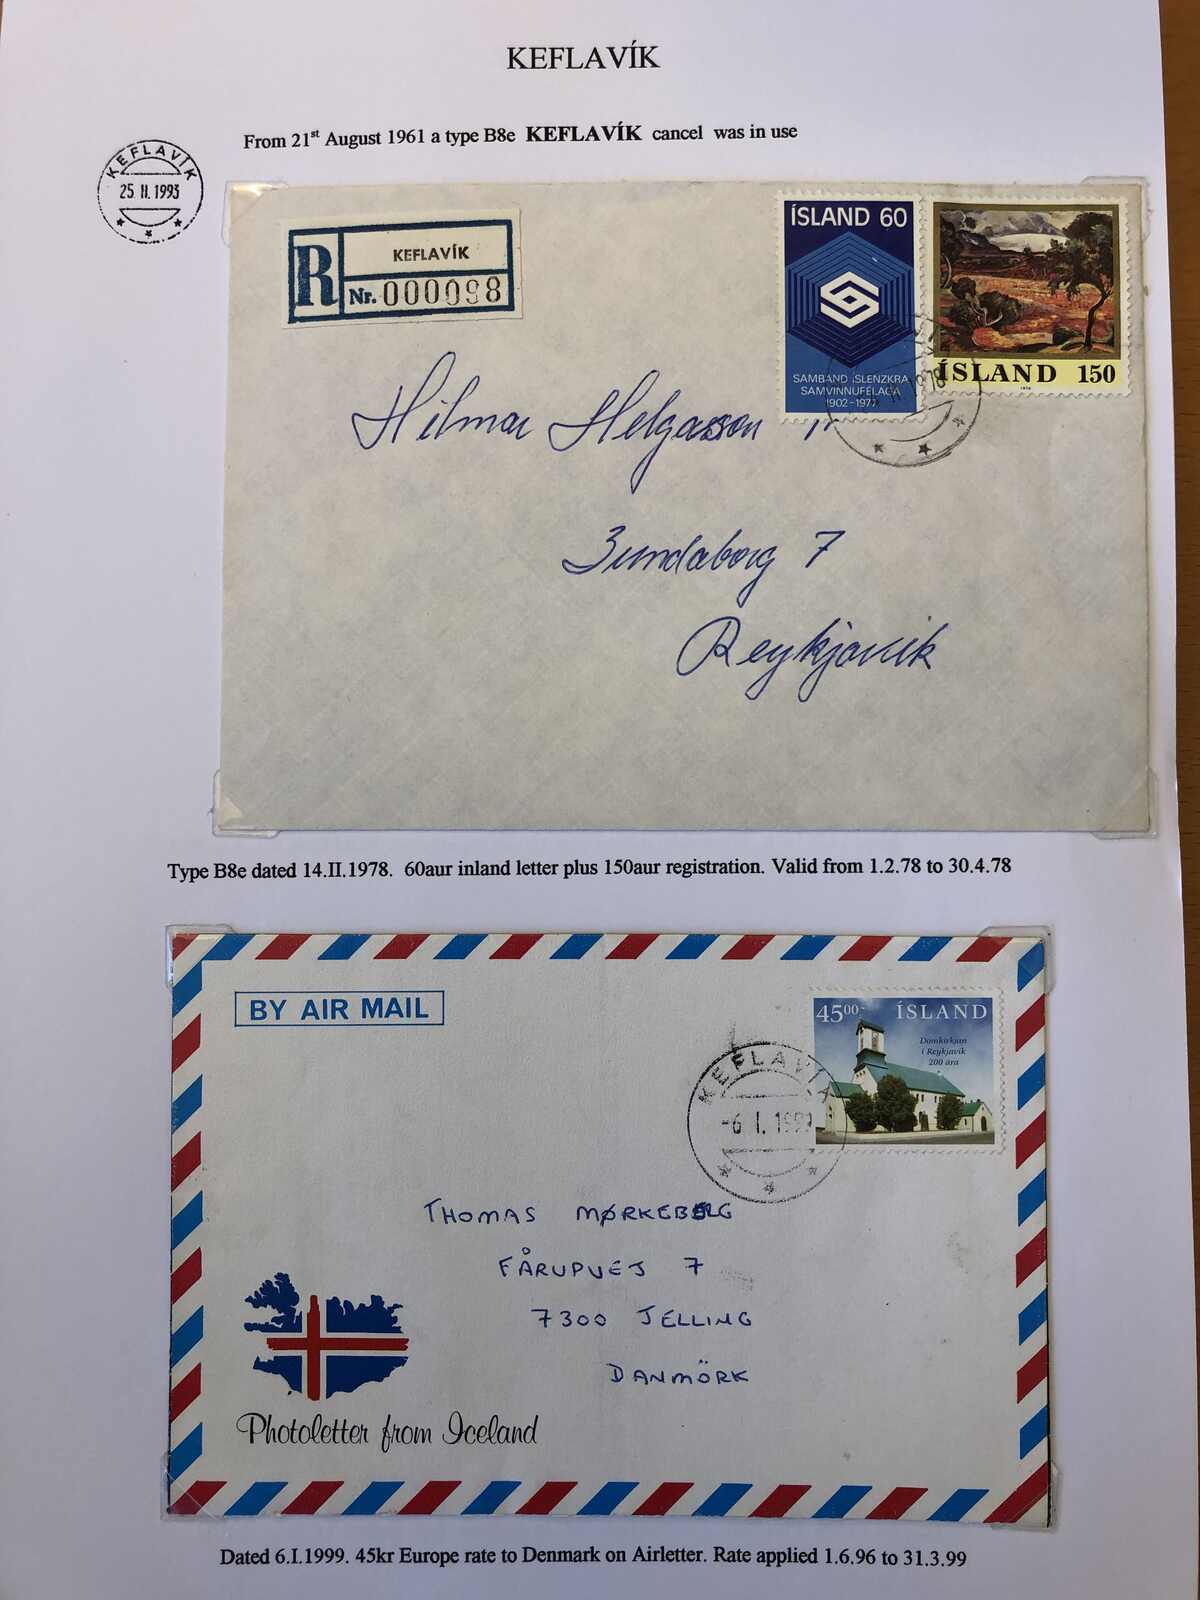 KEFLAVÍK
From 21st August 1961 a type B8e KEFLAVÍK cancel was in use
KEFLAVÍK
25. II. 1993
R
KEFLAVÍK
Nr. 000098
ÍSLAND 60
SAMBAND ÍSLENZKRA
SAMVINNUFÉLAGA
1902-1977
ÍSLAND 150
1976
Hilmar Helgasson
Sundaborg 7
Reykjavik
Type B8e dated 14.II.1978. 60aur inland letter plus 150aur registration. Valid from 1.2.78 to 30.4.78
BY AIR MAIL
4500 ÍSLAND
Dómkirkjan
í Reykjavík
200 ára
KEFLAVÍK
-6. I. 1999
THOMAS MØRKEBERG
FÅRUPVEJ 7
7300 JELLING
DANMÖRK
Photoletter from Iceland
Dated 6.I.1999. 45kr Europe rate to Denmark on Airletter. Rate applied 1.6.96 to 31.3.99